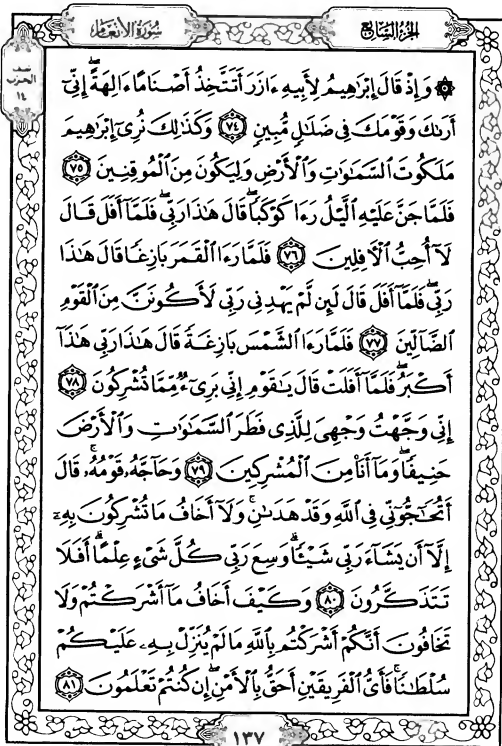 الجزء السابع
سورة الأنعام
نصف
الحزب
١٤
۞ وَإِذْ قَالَ إِبْرَٰهِيمُ لِأَبِيهِ ءَازَرَ أَتَتَّخِذُ أَصْنَامًا ءَالِهَةً ۖ إِنِّىٓ
أَرَىٰكَ وَقَوْمَكَ فِى ضَلَٰلٍ مُّبِينٍ ٧٤ وَكَذَٰلِكَ نُرِىٓ إِبْرَٰهِيمَ
مَلَكُوتَ ٱلسَّمَٰوَٰتِ وَٱلْأَرْضِ وَلِيَكُونَ مِنَ ٱلْمُوقِنِينَ ٧٥
فَلَمَّا جَنَّ عَلَيْهِ ٱلَّيْلُ رَءَا كَوْكَبًا ۖ قَالَ هَٰذَا رَبِّى ۖ فَلَمَّآ أَفَلَ قَالَ
لَآ أُحِبُّ ٱلْءَافِلِينَ ٧٦ فَلَمَّا رَءَا ٱلْقَمَرَ بَازِغًا قَالَ هَٰذَا
رَبِّى ۖ فَلَمَّآ أَفَلَ قَالَ لَئِن لَّمْ يَهْدِنِى رَبِّى لَأَكُونَنَّ مِنَ ٱلْقَوْمِ
ٱلضَّآلِّينَ ٧٧ فَلَمَّا رَءَا ٱلشَّمْسَ بَازِغَةً قَالَ هَٰذَا رَبِّى هَٰذَآ
أَكْبَرُ ۖ فَلَمَّآ أَفَلَتْ قَالَ يَٰقَوْمِ إِنِّى بَرِىٓءٌ مِّمَّا تُشْرِكُونَ ٧٨
إِنِّى وَجَّهْتُ وَجْهِىَ لِلَّذِى فَطَرَ ٱلسَّمَٰوَٰتِ وَٱلْأَرْضَ
حَنِيفًا ۖ وَمَآ أَنَا۠ مِنَ ٱلْمُشْرِكِينَ ٧٩ وَحَآجَّهُۥ قَوْمُهُۥ ۚ قَالَ
أَتُحَٰٓجُّوٓنِّى فِى ٱللَّهِ وَقَدْ هَدَىٰنِ ۚ وَلَآ أَخَافُ مَا تُشْرِكُونَ بِهِۦٓ
إِلَّآ أَن يَشَآءَ رَبِّى شَيْـًٔا ۗ وَسِعَ رَبِّى كُلَّ شَىْءٍ عِلْمًا ۗ أَفَلَا
تَتَذَكَّرُونَ ٨٠ وَكَيْفَ أَخَافُ مَآ أَشْرَكْتُمْ وَلَا
تَخَافُونَ أَنَّكُمْ أَشْرَكْتُم بِٱللَّهِ مَا لَمْ يُنَزِّلْ بِهِۦ عَلَيْكُمْ
سُلْطَٰنًا ۚ فَأَىُّ ٱلْفَرِيقَيْنِ أَحَقُّ بِٱلْأَمْنِ ۖ إِن كُنتُمْ تَعْلَمُونَ ٨١
١٣٧